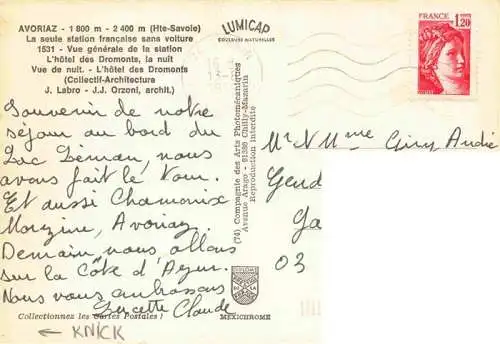 AVORIAZ - 1 800 m - 2 400 m (Hte-Savoie)
La seule station française sans voiture
1531 - Vue générale de la station
L'hôtel des Dromonts, la nuit
Vue de nuit. - L'hôtel des Dromonts
(Collectif-Architecture
J. Labro - J.J. Orzoni, archit.)
LUMICAP
COULEURS NATURELLES
FRANCE
1,20
Souvenir de notre
séjour au bord du
Lac Léman, nous
avons fait le tour.
Et aussi Chamonix
Morzine, Avoriaz.
Demain nous allons
sur la Côte d'Azur.
Nous vous embrassons
Lucette Claude
(74) Compagnie des Arts Photomécaniques
Avenue Arago - 91380 Chilly-Mazarin
Reproduction interdite
Mr N Mme Andre
Gend
Ga
03
Collectionnez les Cartes Postales !
MEXICHROME
← KNICK